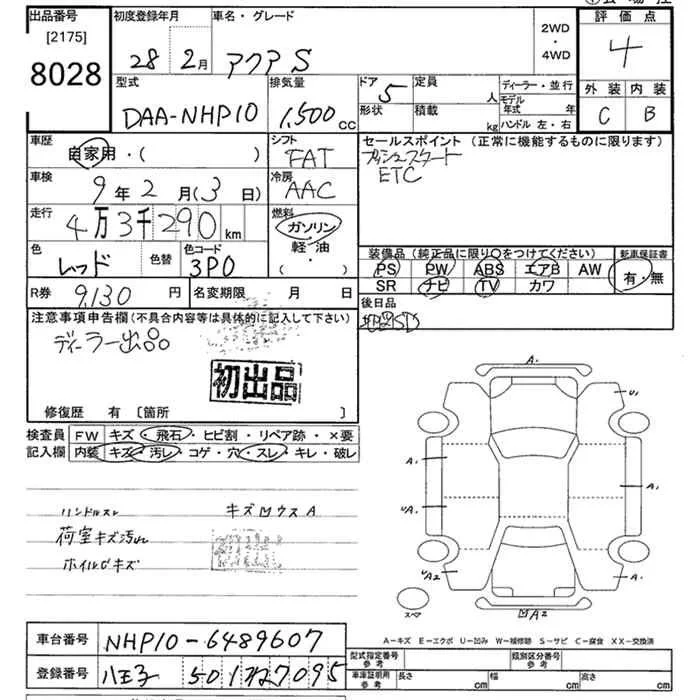 出品番号
[2175]
8028
初度登録年月
28 2月
車名・グレード
アクア S
2WD
・
4WD
評価点
4
外装 内装
C B
型式
DAA-NHP10
排気量
1,500cc
ドア 5
形状
定員 人
積載 kg
ディーラー・並行
モデル年式 年
ハンドル 左・右
車歴
自家用・( )
シフト
FAT
セールスポイント (正常に機能するものに限ります)
プッシュスタート
ETC
車検
9年2月(3日)
冷房
AAC
走行
4万3千290km
燃料
ガソリン
軽・油
( ・ )
色
レッド
色替
色コード
3P0
装備品(純正品に限り○をつけてください)
PS PW ABS エアB AW
SR ナビ TV カワ
新車保証書
有・無
R券 9,130円
名変期限 月 日
後日品
注意事項申告欄(不具合内容等は具体的に記入して下さい)
ディーラー出品
初出品
修復歴 有 〔箇所 〕
検査員記入欄
FW キズ・飛石・ヒビ割・リペア跡・×要
内装 キズ・汚レ・コゲ・穴・スレ・キレ・破レ
ハンドルスレ キズ凹ウスA
荷室キズ汚レ
ホイルCキズ
A・
U1
A1
A1
UA1
UA2
A・
スペア
凹A2
A-キズ E-エクボ U-凹み W-補修跡 S-サビ C-腐食 XX-交換済
車台番号 NHP10-6489607
登録番号 八王子 501
型式指定番号
参考
類別区分番号
参考
車庫証明用
参考
長さ cm
幅 cm
高さ cm